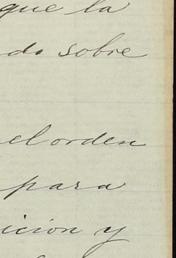 que la
do sobre
el orden
para
icion y